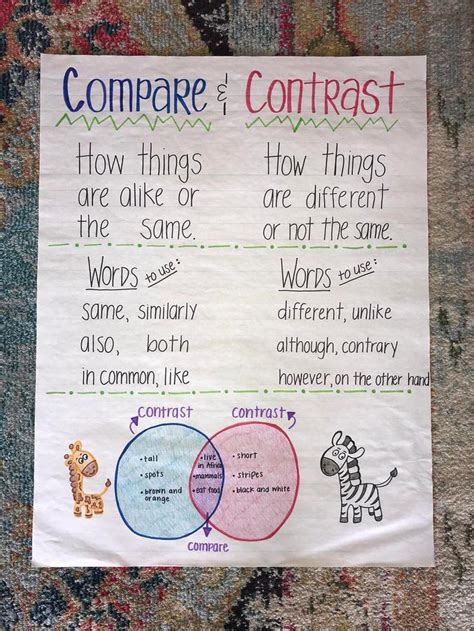 Compare & Contrast
How things
are alike or
the same.
How things
are different
or not the same.
Words to use:
same, similarly
also, both
in common, like
Words to use:
different, unlike
although, contrary
however, on the other hand
Contrast
Contrast
• tall
• spots
• brown and
orange
• live
in Africa
• mammals
• eat food
• short
• stripes
• black and white
Compare